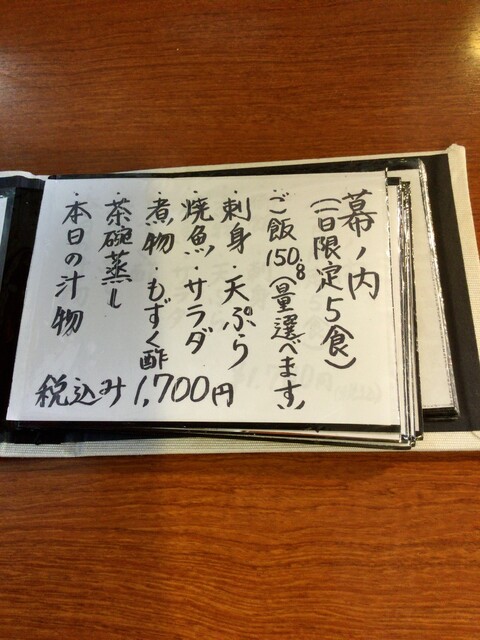 幕ノ内
(一日限定5食)
・ご飯150g(量選べます)
・刺身・天ぷら
・焼魚・サラダ
・煮物・もずく酢
・茶碗蒸し
・本日の汁物
税込み1,700円